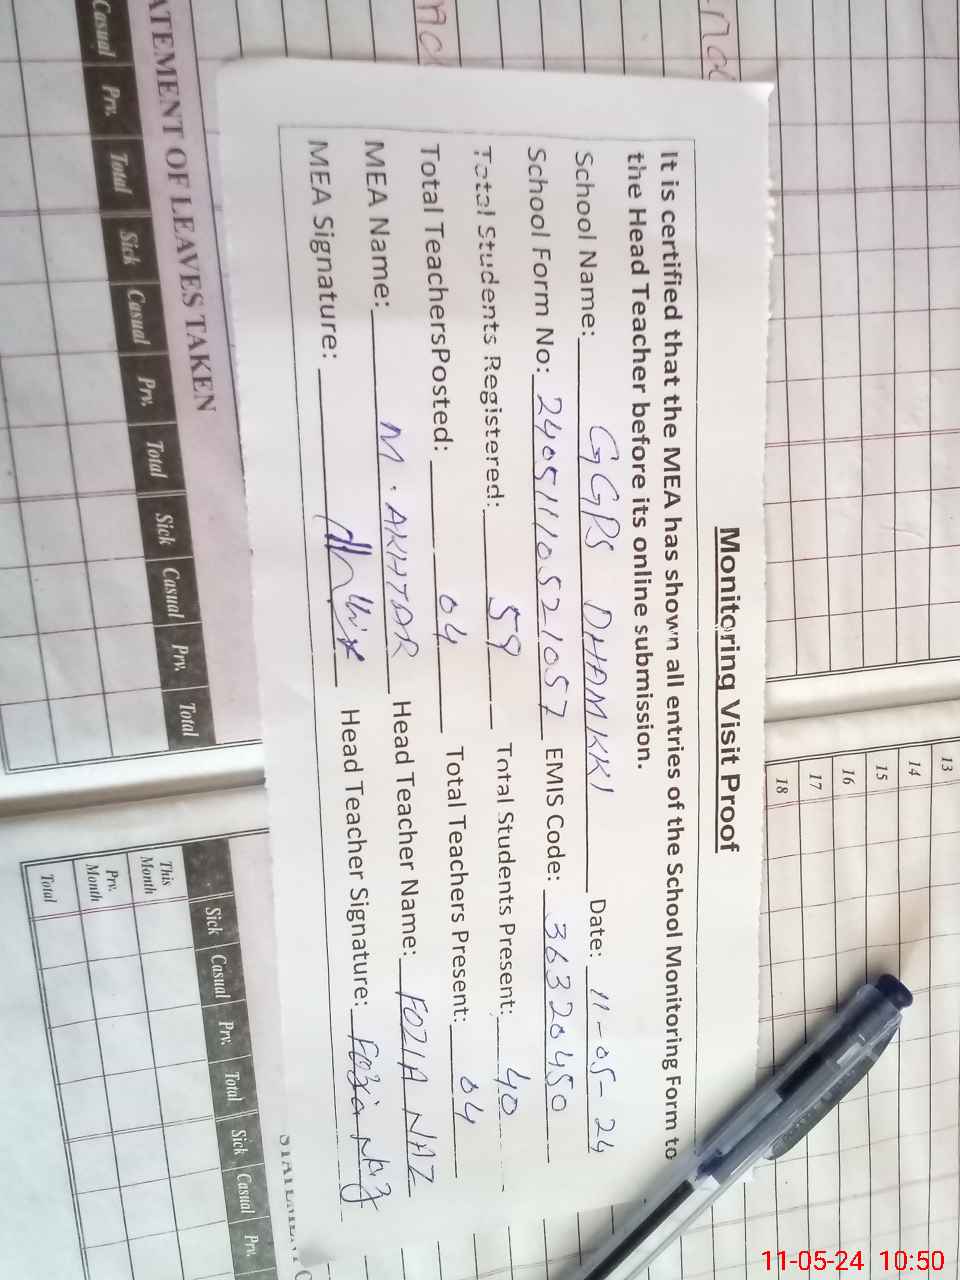 Monitoring Visit Proof
It is certified that the MEA has shown all entries of the School Monitoring Form to
the Head Teacher before its online submission.
School Name: GGPS DHAMKKI Date: 11-05-24
School Form No: 24051110521057 EMIS Code: 36320450
Total Students Registered: 59 Total Students Present: 40
Total TeachersPosted: 04 Total Teachers Present: 04
MEA Name: M. AKHTAR Head Teacher Name: FOZIA NAZ
MEA Signature: Head Teacher Signature: Fozia Naz
ATEMENT OF LEAVES TAKEN
Casual Prv. Total Sick Casual Prv. Total Sick Casual Prv. Total
13
14
15
16
17
18
Sick Casual Prv. Total Sick Casual Prv.
This Month
Prv. Month
Total
11-05-24 10:50